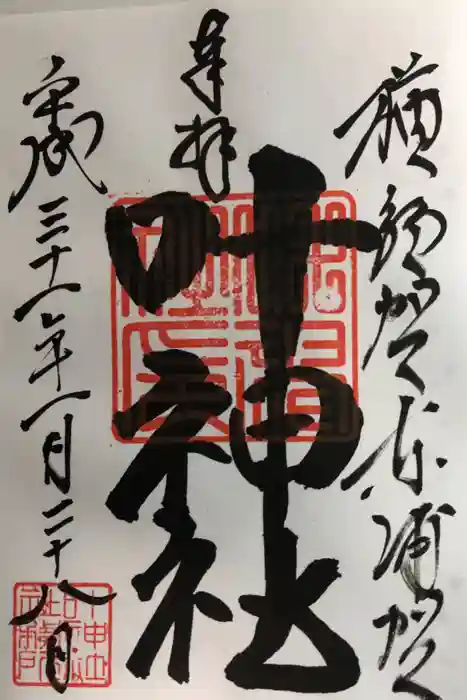 横須賀東浦賀
奉拝
叶神社
平成三十一年一月二十八日